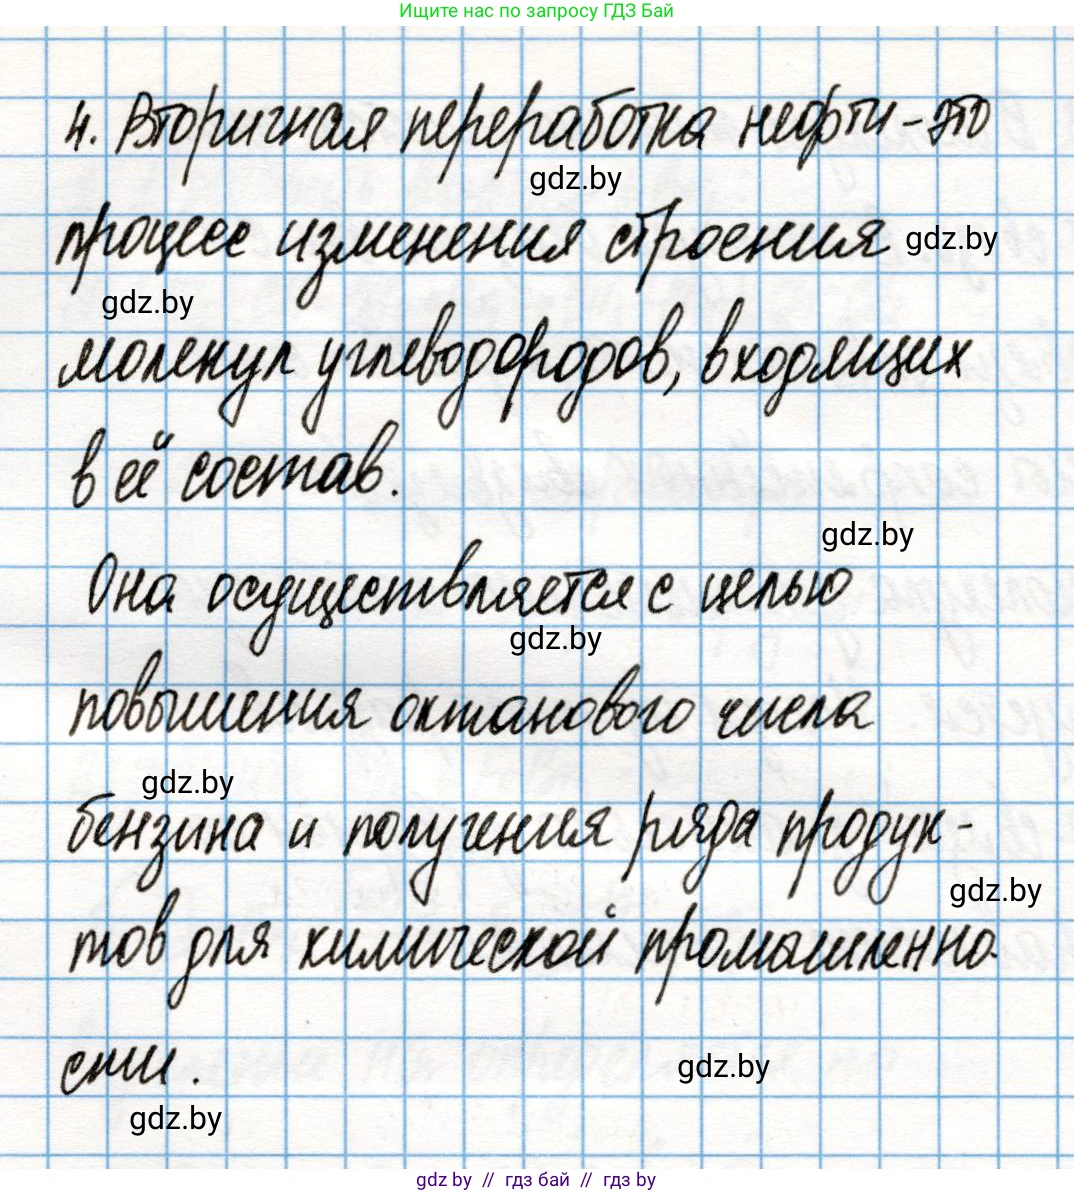 Ищите нас по запросу ГДЗ Бай
4. Вторичная переработка нефти - это
gdz.by
процесс изменения строения
gdz.by
gdz.by
молекул углеводородов, входящих
в её состав.
gdz.by
Она осуществляется с целью
gdz.by
повышения октанового числа
gdz.by
бензина и получения ряда продук-
gdz.by
тов для химической промышленно-
сти.
gdz.by
gdz.by
gdz by // гдз бай // gdz by